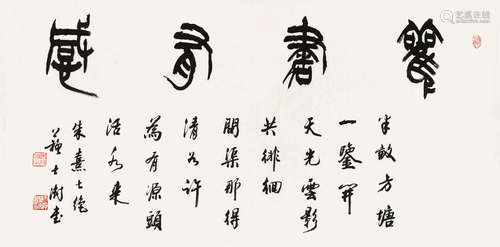 觀書有感
半畝方塘
一鑒開
天光雲影
共徘徊
問渠那得
清如許
為有源頭
活水來
朱熹七絕
蘇士澍書